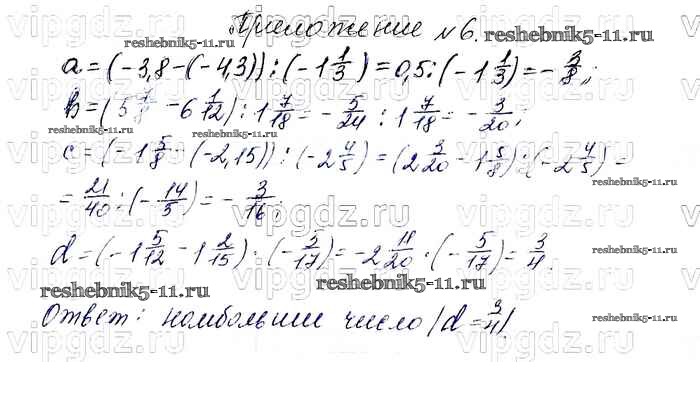 Приложение №6.
a=(-3,8-(-4,3)):(-1 1/3)=0,5:(-1 1/3)=-3/8;
b=(5 7/8-6 1/12):1 7/18=-5/24:1 7/18=-3/20;
c=(-1 5/8-(-2,15)):(-2 4/5)=(2 3/20-1 5/8):(-2 4/5)=
=21/40:(-14/5)=-3/16;
d=(-1 5/12-1 2/15)·(-5/17)=-2 11/20·(-5/17)=3/4.
Ответ: число (d=3/4).
reshebnik5-11.ru
reshebnik5-11.ru
reshebnik5-11.ru
reshebnik5-11.ru
reshebnik5-11.ru
reshebnik5-11.ru
reshebnik5-11.ru
reshebnik5-11.ru
reshebnik5-11.ru
vipgdz.ru
vipgdz.ru
vipgdz.ru
vipgdz.ru
vipgdz.ru
vipgdz.ru
vipgdz.ru
vipgdz.ru
vipgdz.ru
vipgdz.ru
vipgdz.ru
vipgdz.ru